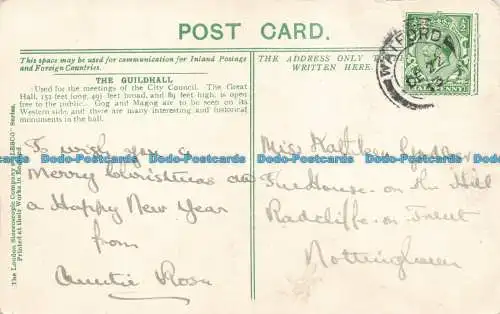 POST CARD.
This space may be used for communication for Inland Postage
and Foreign Countries.
THE GUILDHALL
Used for the meetings of the City Council. The Great
Hall, 152 feet long, 49½ feet broad, and 89 feet high, is open
free to the public. Gog and Magog are to be seen on its
Western side and there are many interesting and historical
monuments in the hall.
To wish you a
Merry Christmas and
a Happy New Year
from
Auntie Rose
The London Stereoscopic Company "LESCO" Series.
Printed at their Works in England
THE ADDRESS ONLY TO
WRITTEN HERE.
WATFORD
HALFPENNY
Miss Kathleen
The House on the Hill
Radcliffe-on-Trent
Nottingham
Bobo-Postcards Bobo-Postcards Bobo-Postcards Bobo-Postcards